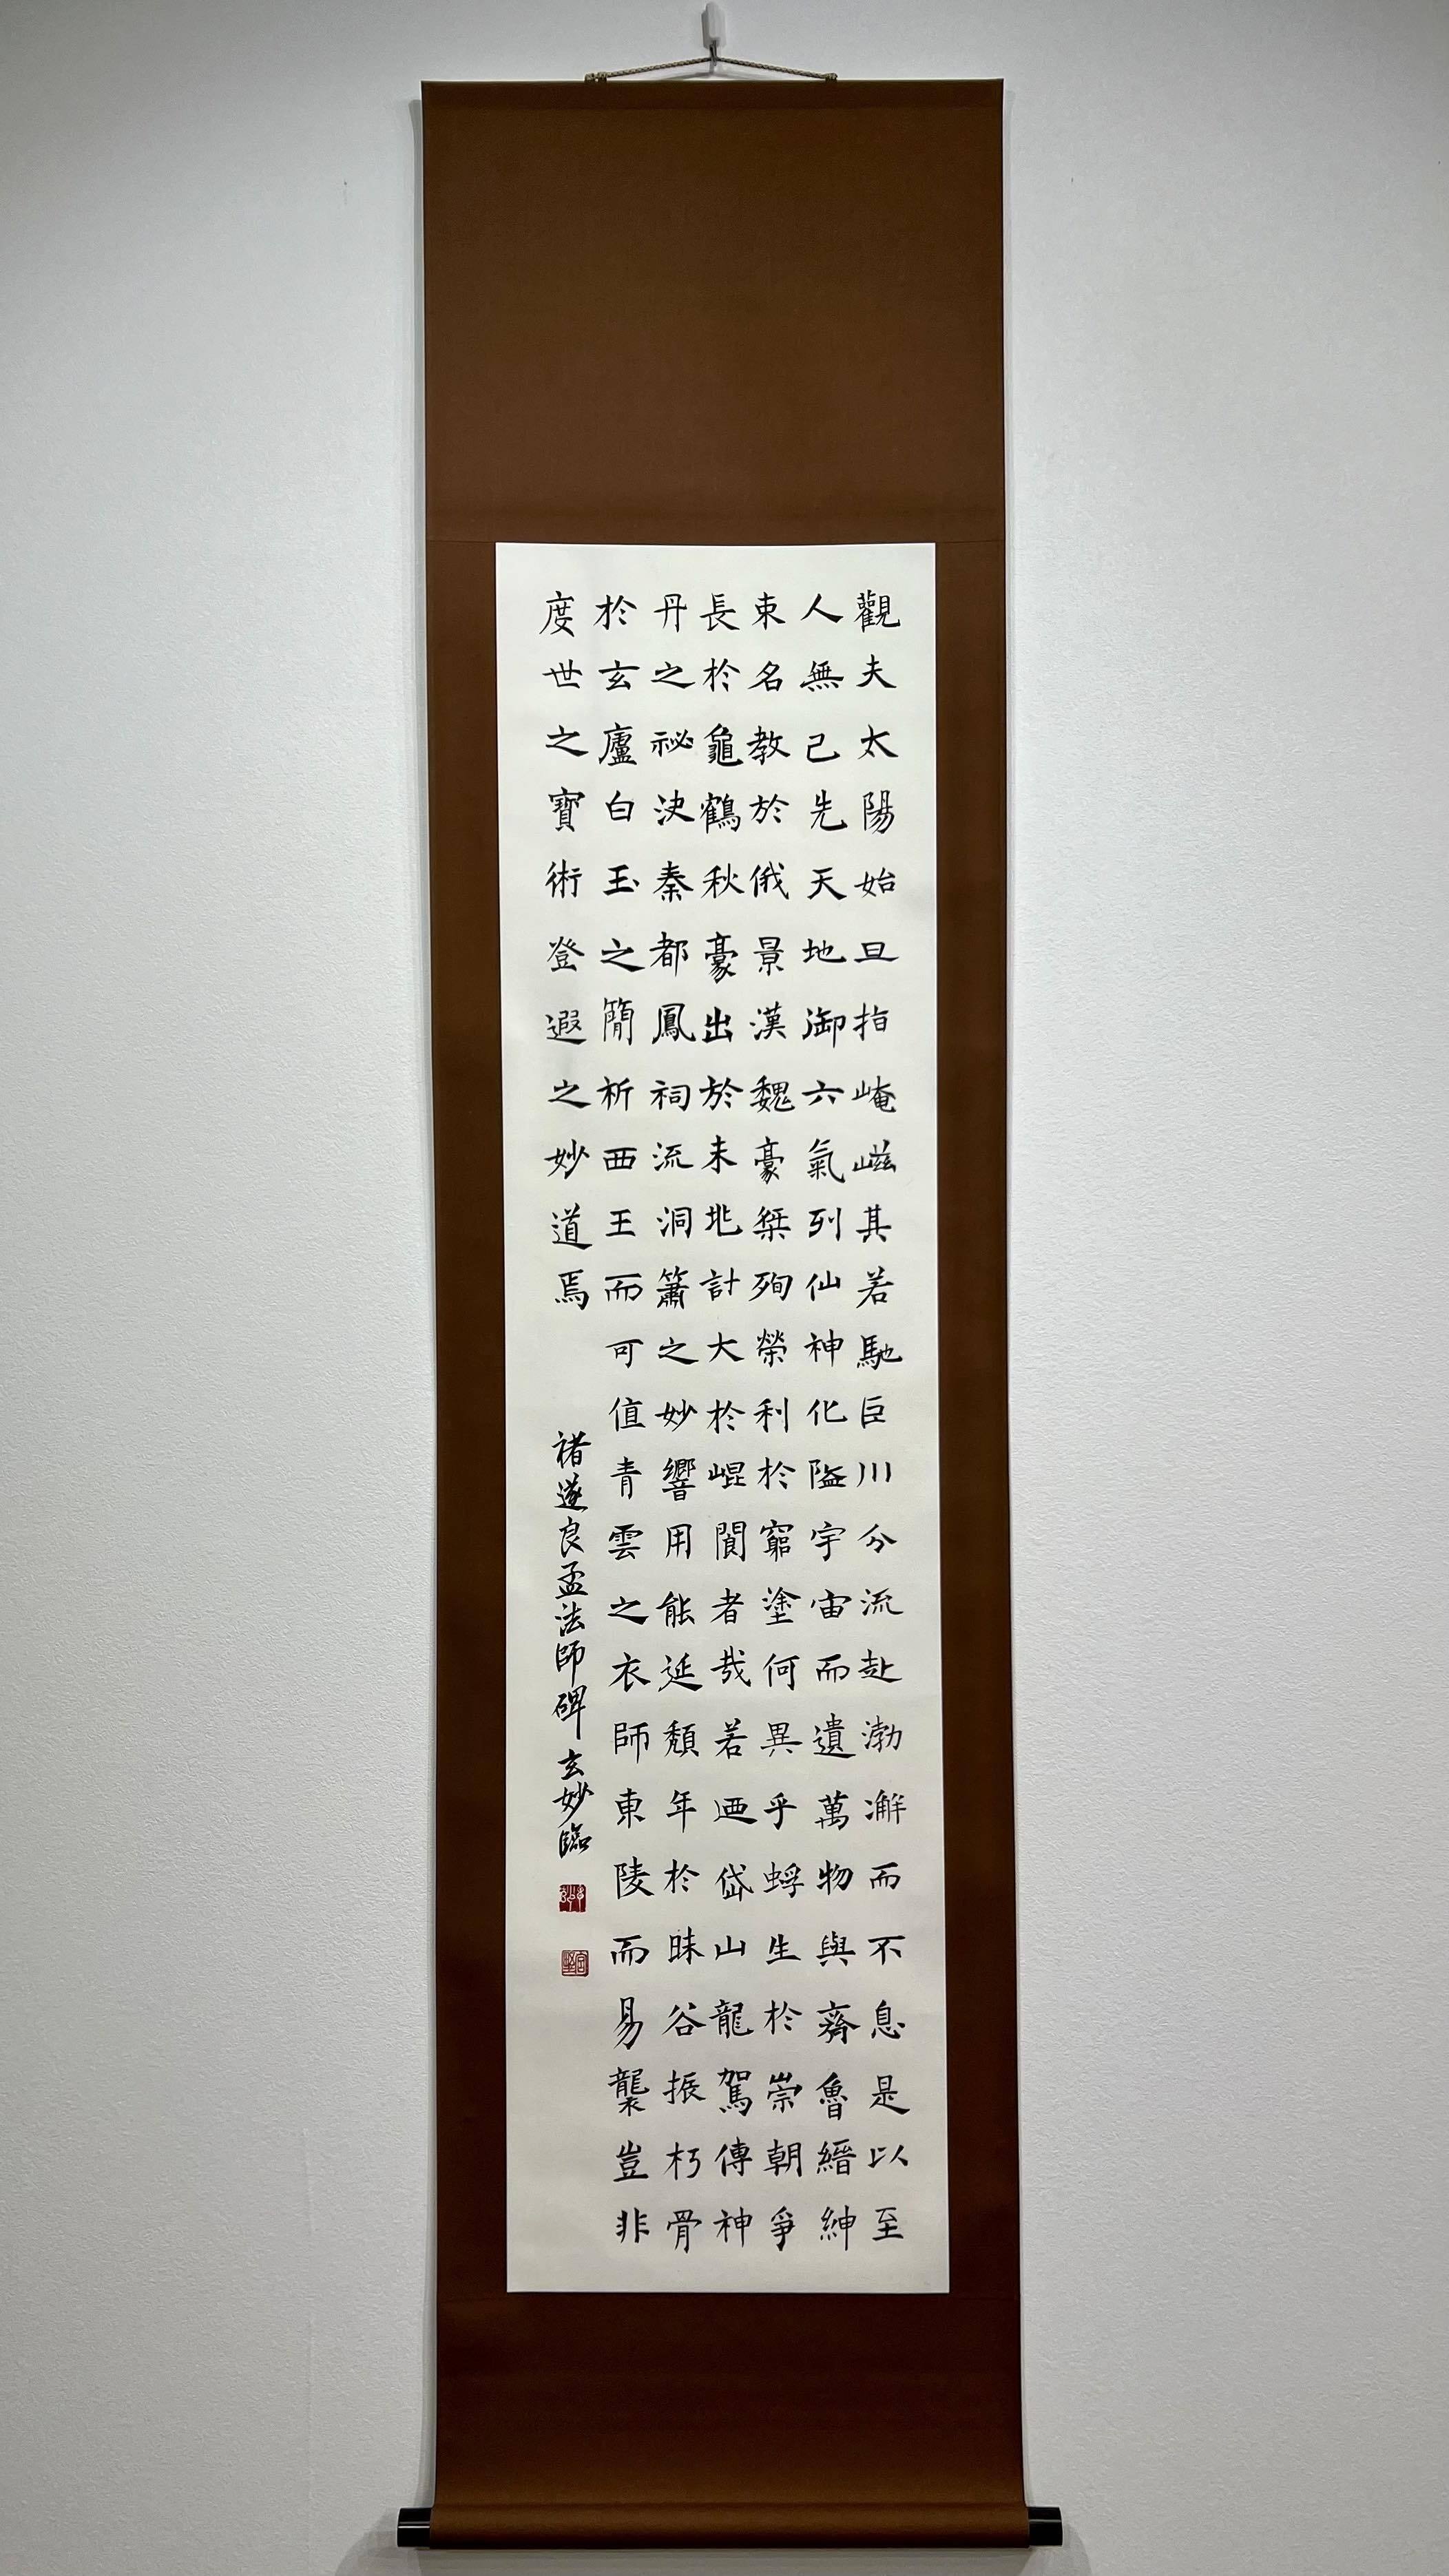 觀夫太陽始旦指崦嵫其若馳巨川分流赴渤澥而不息是以至
人無己先天地御六氣列仙神化隘宇宙而遺萬物與齊魯縉紳
束名教於俄景漢魏豪桀殉榮利於窮塗何異乎蜉生於崇朝爭
長於龜鶴秋豪出於未兆計大於崐閬者哉若迺岱山龍駕傳神
丹之祕決秦都鳳祠流洞簫之妙響用能延頹年於昧谷振朽骨
於玄廬白玉之簡祈西王而可值青雲之衣師東陵而易襲豈非
度世之寶術登遐之妙道焉
褚遂良孟法師碑 玄妙臨